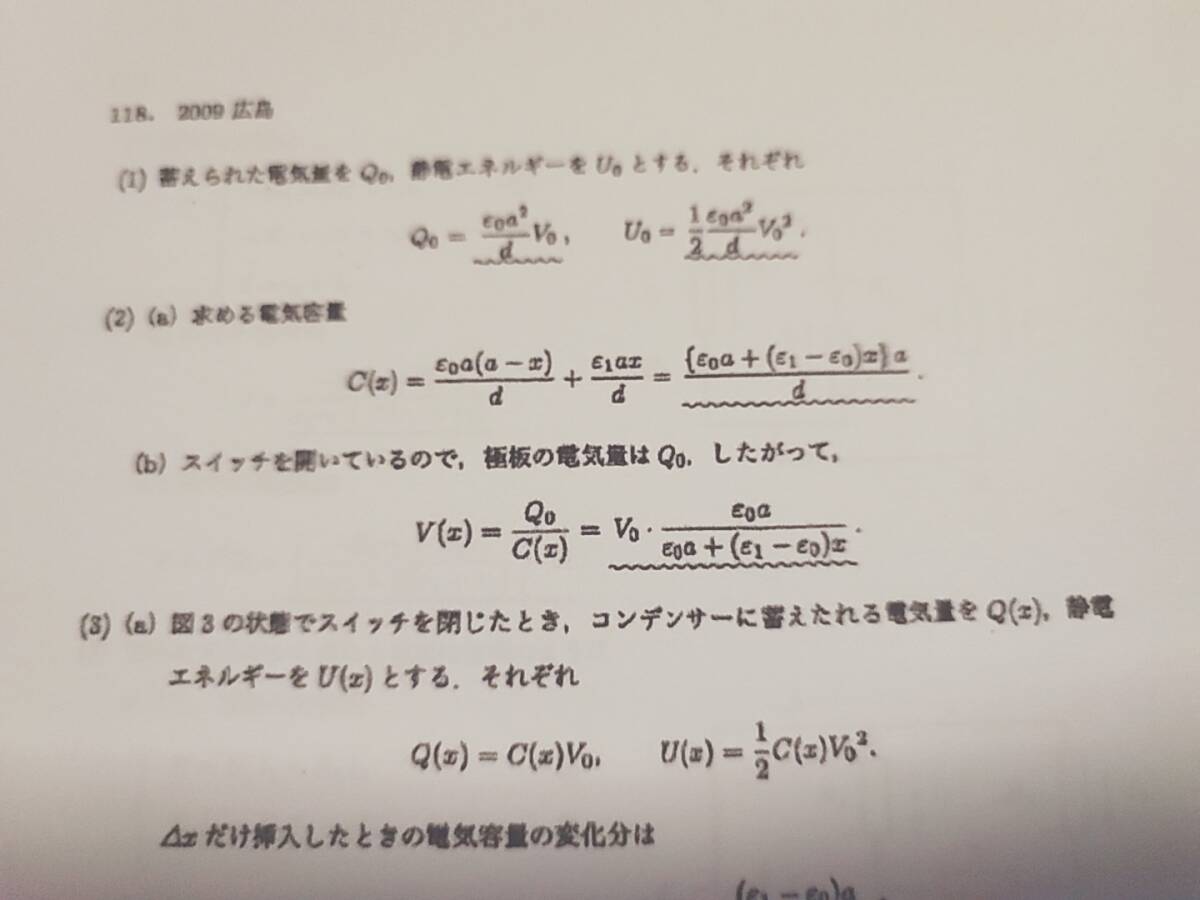 118. 2009 広島
(1) 蓄えられた電気量を Q₀, 静電エネルギーを U₀ とする. それぞれ
Q₀ = ε₀a²/d V₀, U₀ = 1/2 ε₀a²/d V₀².
(2) (a) 求める電気容量
C(x) = ε₀a(a − x)/d + ε₁ax/d = {ε₀a + (ε₁ − ε₀)x} a/d.
(b) スイッチを開いているので, 極板の電気量は Q₀. したがって,
V(x) = Q₀/C(x) = V₀ · ε₀a/ε₀a + (ε₁ − ε₀)x.
(3) (a) 図 3 の状態でスイッチを閉じたとき, コンデンサーに蓄えたれる電気量を Q(x), 静電
エネルギーを U(x) とする. それぞれ
Q(x) = C(x)V₀, U(x) = 1/2 C(x)V₀².
Δx だけ挿入したときの電気容量の変化分は
(ε₁ − ε₀)a